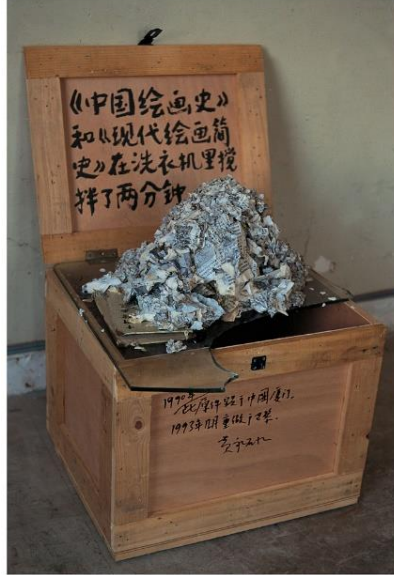 《中国绘画史》
和《现代绘画简
史》在洗衣机里搅
拌了两分钟
1990年
此原件 于中国厦门.
1993年 月重做于巴黎.
黄永砯